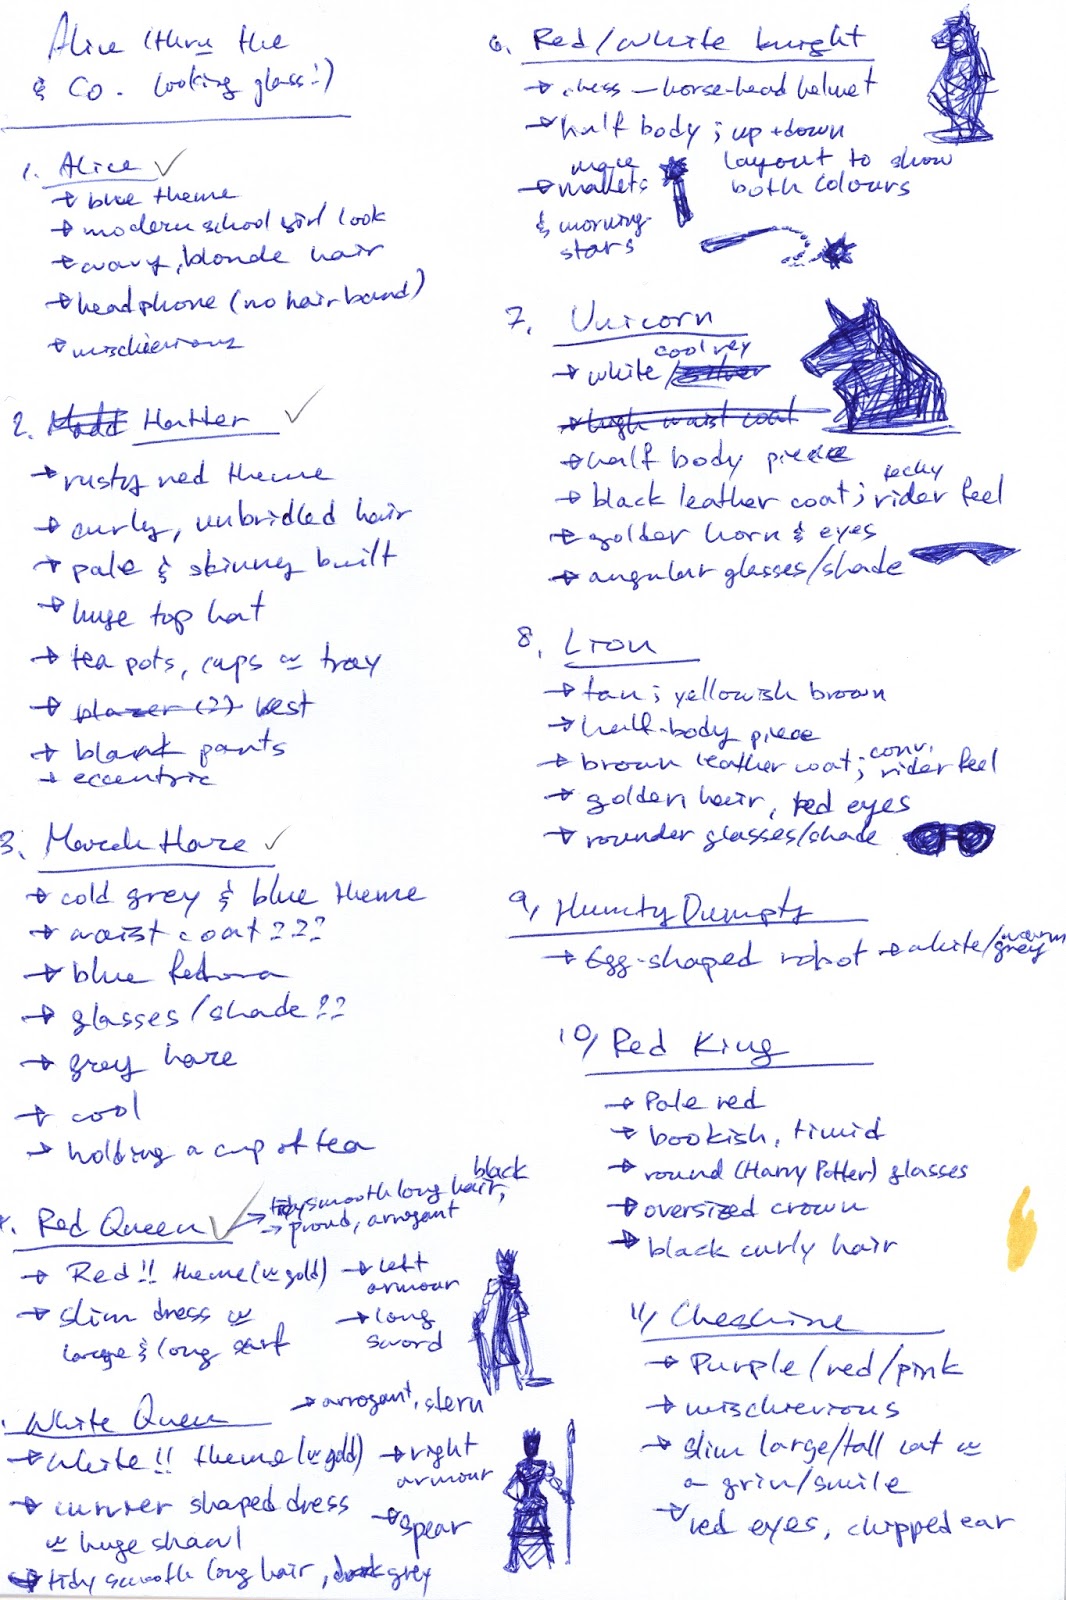 Alice (thru the
& Co. looking glass!)
1. Alice ✓
→ blue theme
→ modern school girl look
→ wavy, blonde hair
→ headphone (no hair band)
→ mischievious
2. Madd Hatter ✓
→ rusty red theme
→ curly, unbridled hair
→ pale & skinny built
→ huge top hat
→ tea pots, cups w tray
→ blazer (?) vest
→ blank pants
→ eccentric
3. March Hare ✓
→ cold grey & blue theme
→ waist coat???
→ blue fedora
→ glasses/shade??
→ grey hare
→ cool
→ holding a cup of tea
Red Queen ✓
→ tidy smooth long hair, black
→ proud, arrogant
→ Red!! theme (w gold)
→ slim dress w
large & long scarf
→ left
armour
→ long
sword
White Queen
→ arrogant, stern
→ White!! theme (w gold)
→ curvier shaped dress
w huge shawl
→ tidy smooth long hair, dark grey
→ right
armour
→ spear
6. Red/White knight
→ chess – horse-head helmet
→ half body; up + down
layout to show
both colours
→ mallets
& morning
stars
7. Unicorn
→ white / silver cool grey
→ high waist coat
→ half body piece
→ black leather coat; techy rider feel
→ golden horn & eyes
→ angular glasses/shade
8. Lion
→ tan; yellowish brown
→ half-body piece
→ brown leather coat; conv. rider feel
→ golden hair, red eyes
→ rounder glasses/shade
9, Humty Dumpty
→ Egg-shaped robot → white/warm grey
10, Red King
→ Pale red
→ bookish, timid
→ round (Harry Potter) glasses
→ oversized crown
→ black curly hair
11, Cheshire
→ Purple/red/pink
→ mischievious
→ slim large/tall cat w
a grin/smile
→ red eyes, chipped ear